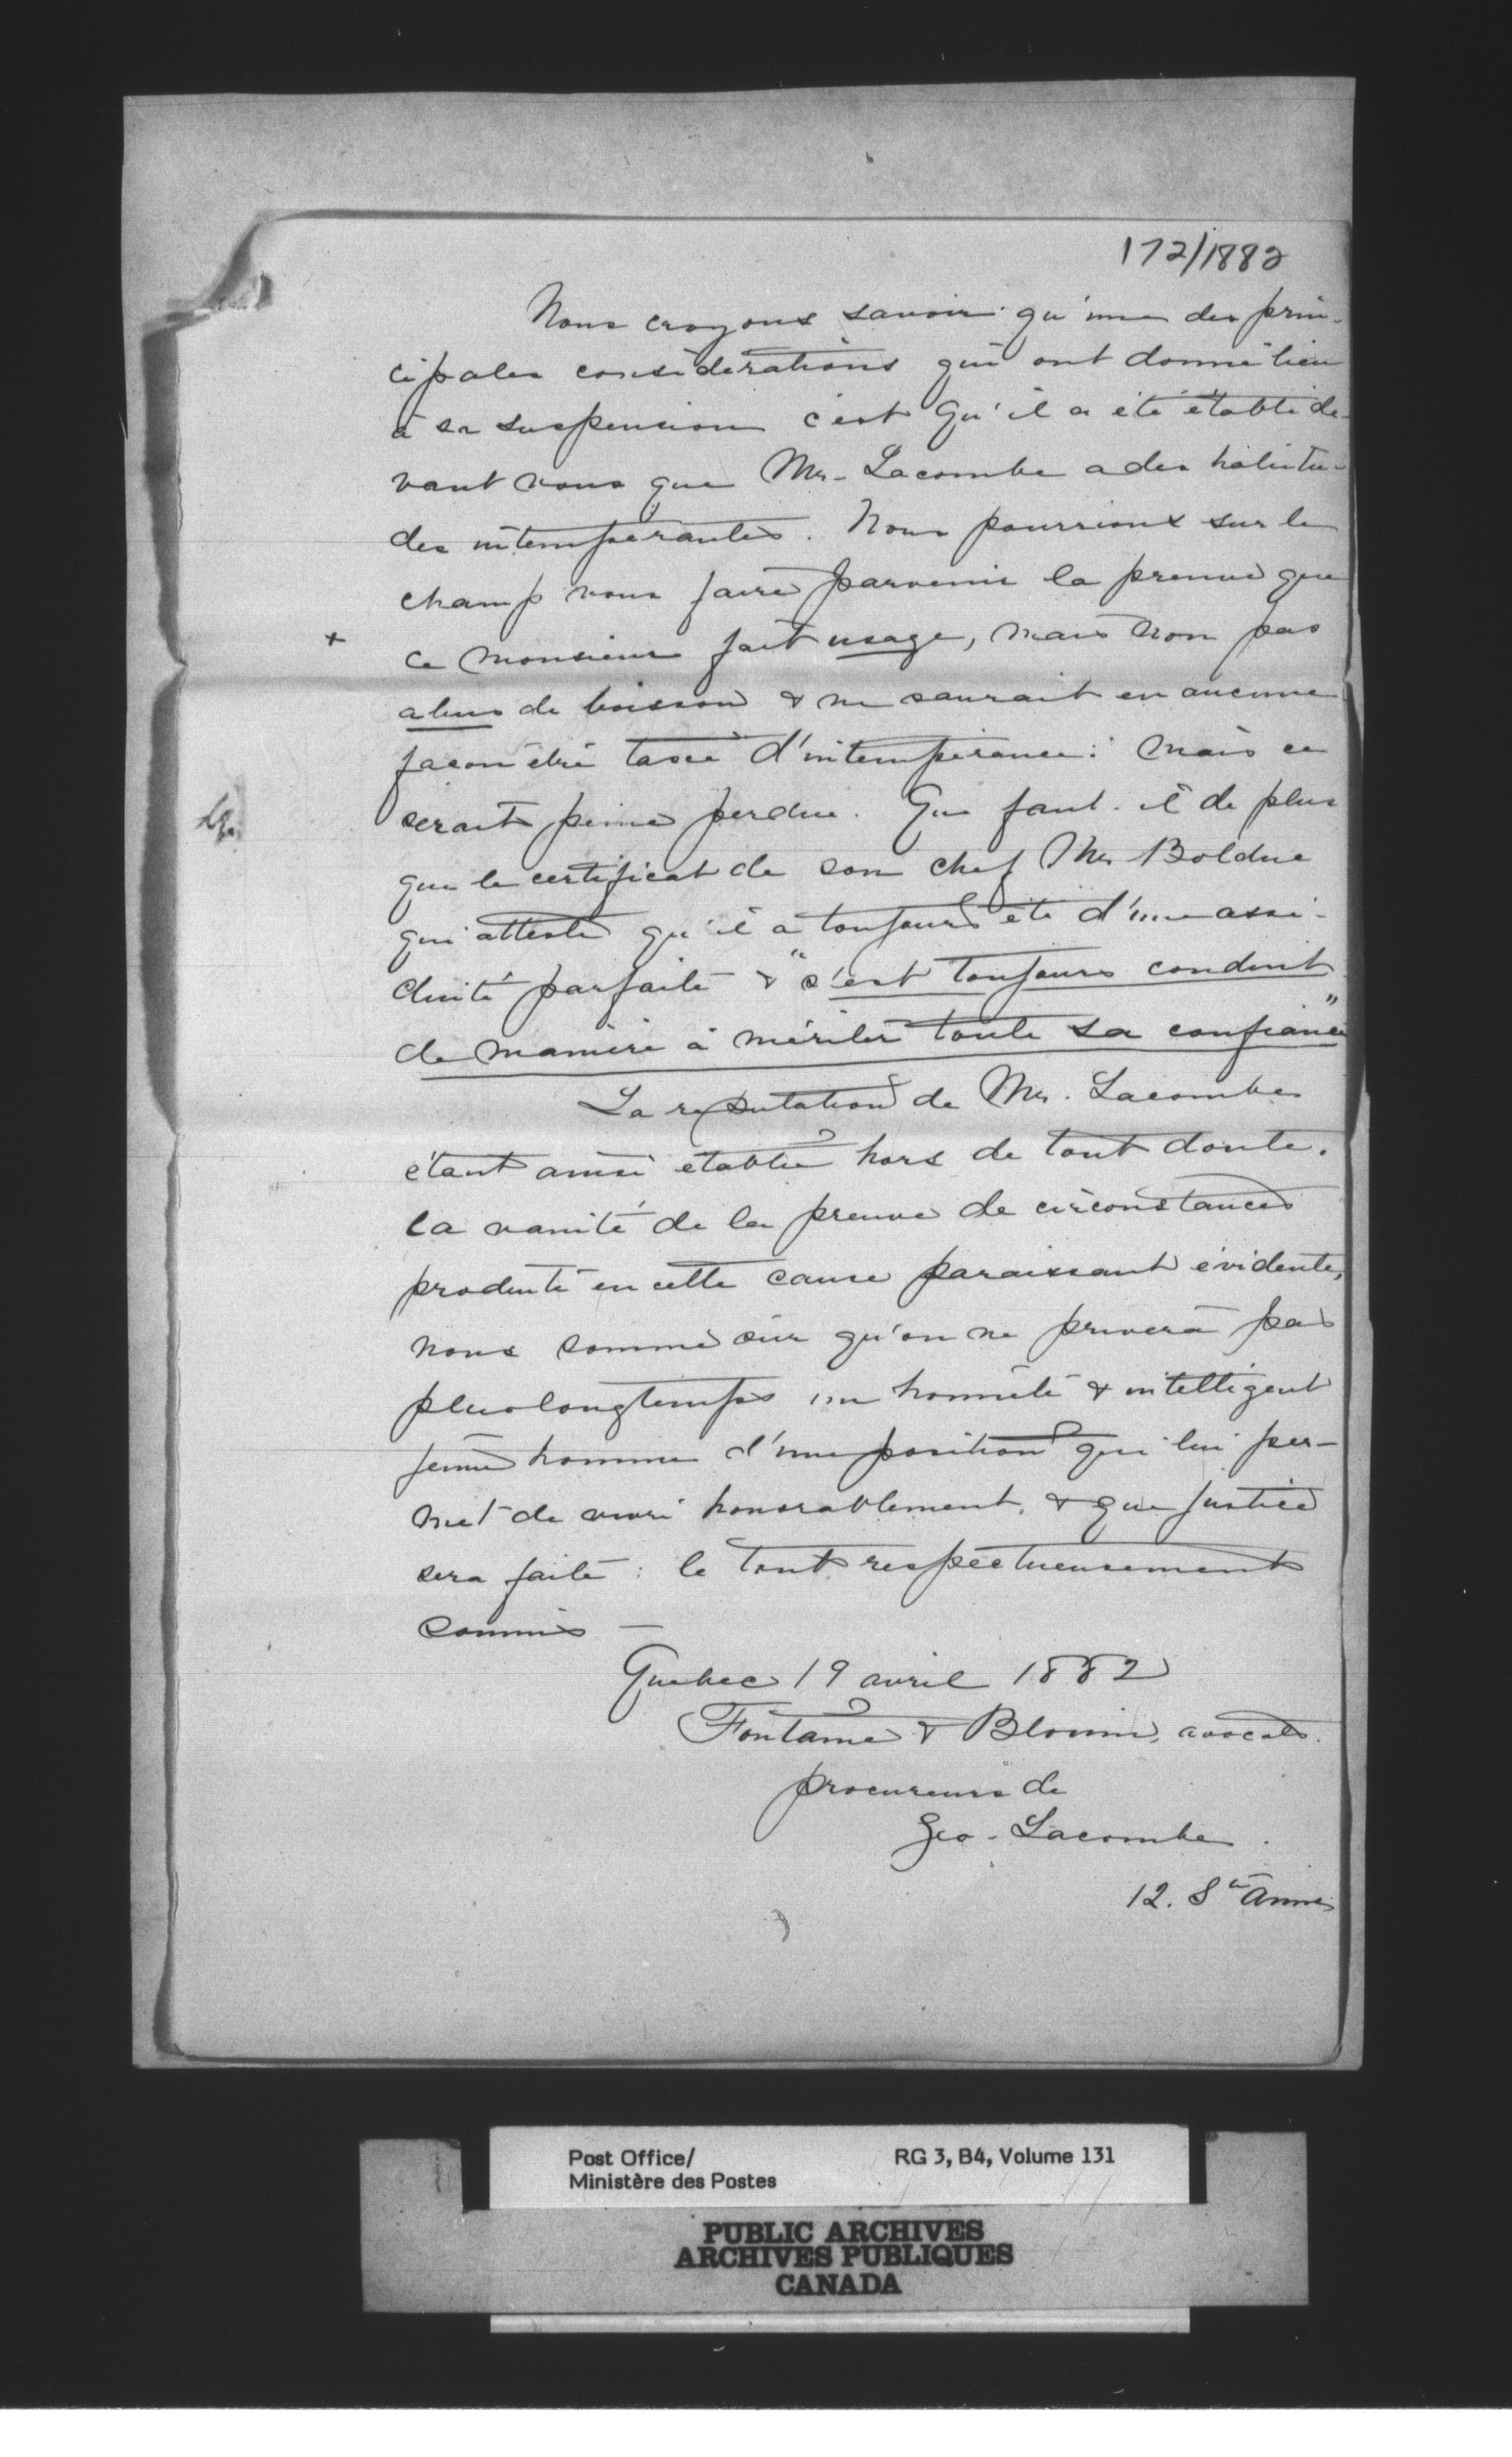 172/1882
Nous croyons savoir qu'une des prin-
cipales considérations qui ont donné lieu
à sa suspension c'est qu'il a été établi de-
vant vous que Mr. Lacombe a des habitu-
des intempérantes. Nous pourrions sur le
champ vous faire parvenir la preuve que
+ ce monsieur fait usage, mais non pas
abus de boisson & ne saurait en aucune
facon être taxé d'intempérance: mais ce
serait peine perdue. Que faut-il de plus
que le certificat de son chef Mr Bolduc
qui atteste qu'il a toujours été d'une assi-
duité parfaite & "s'est toujours conduit
de manière à mériter toute sa confiance"
La reputation de Mr. Lacombe
étant ainsi établie hors de tout doute.
la vanité de la preuve de circonstances
produite en cette cause paraissant évidente,
nous somme sûr qu'on ne privera pas
plus longtemps un honnête & intelligent
jeune homme d'une position qui lui per-
met de vivre honorablement, & que justice
sera faite: le tout respectueusement
soumis —
Quebec 19 avril 1882
Fontaine & Blouin, avocats.
procureurs de
Geo. Lacombe.
12. Ste Anne
Post Office/
Ministère des Postes
RG 3, B4, Volume 131
PUBLIC ARCHIVES
ARCHIVES PUBLIQUES
CANADA